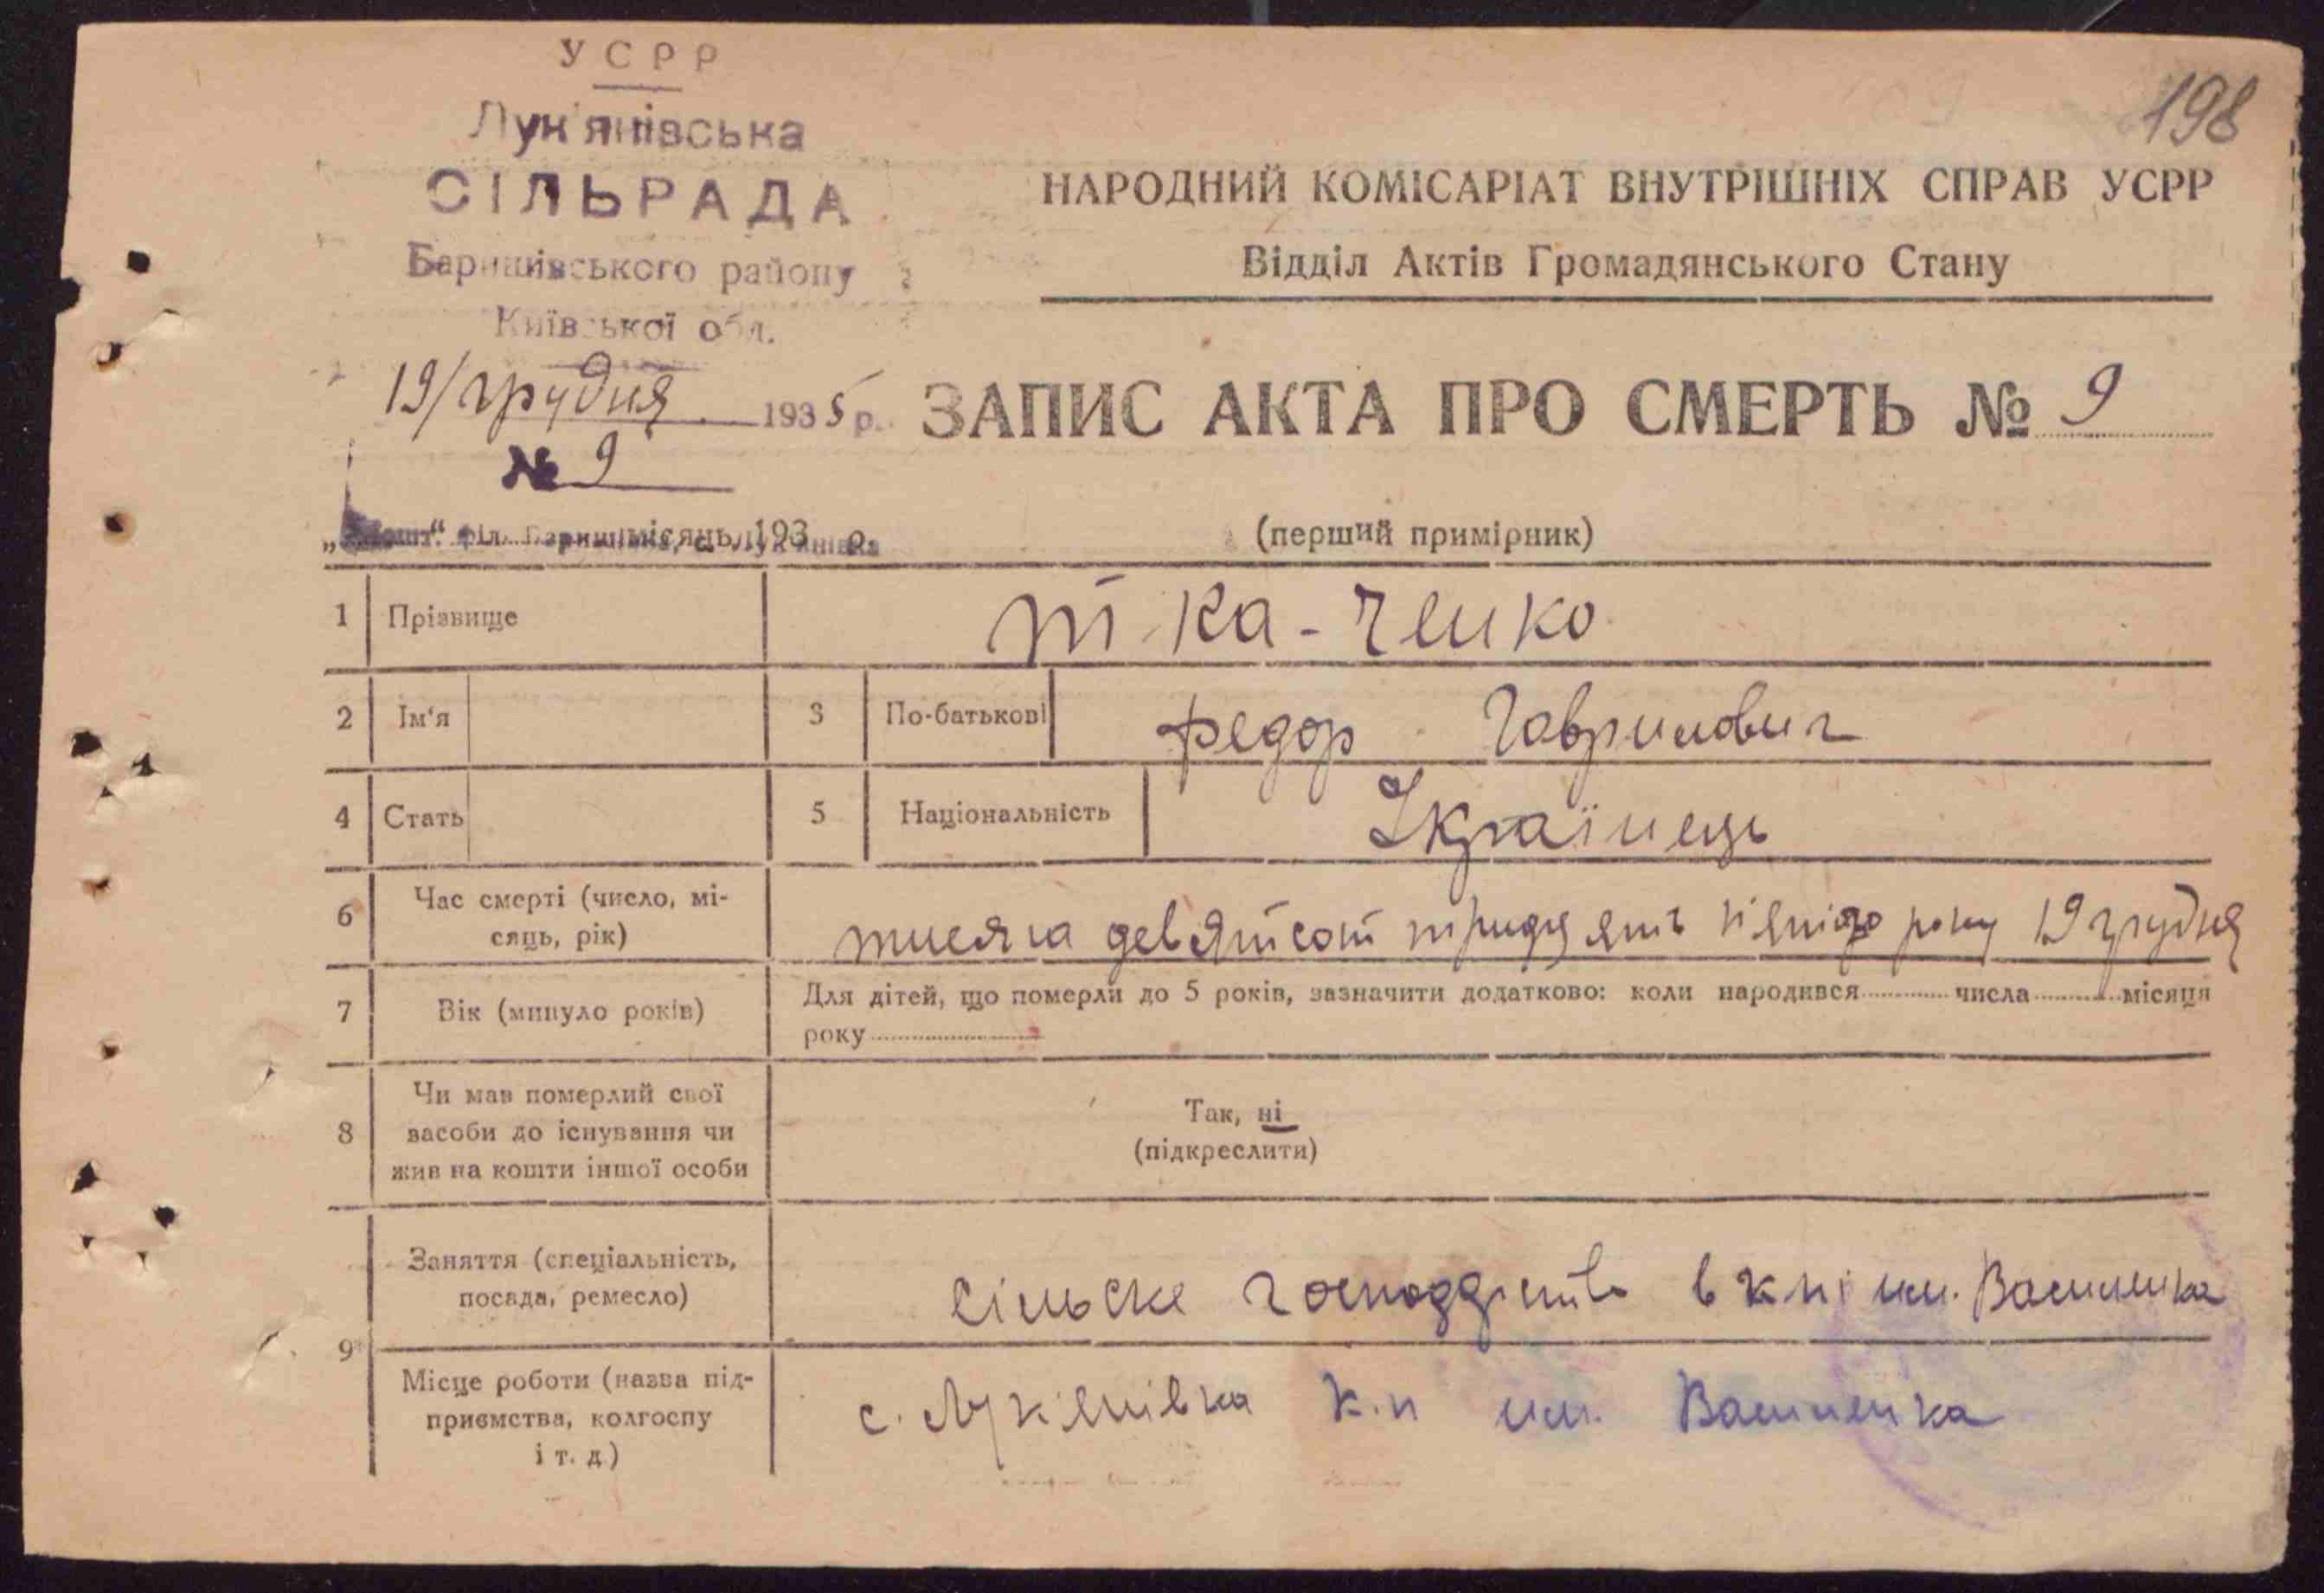 198
УСРР
Лук'янівська
СІЛЬРАДА
Баришівського району
Київської обл.
19/грудня 1935 р.
№ 9
НАРОДНИЙ КОМІСАРІАТ ВНУТРІШНІХ СПРАВ УСРР
Відділ Актів Громадянського Стану
ЗАПИС АКТА ПРО СМЕРТЬ № 9
„ “ місяць 193 р.
(перший примірник)
1 Прізвище Тка-ченко
2 Ім‘я 3 По-батькові Федор Гаврилович
4 Стать 5 Національність Українець
6 Час смерті (число, мі-
сяць, рік) тисяча девятсот тридцять пʼятого року 19 грудня
7 Вік (минуло років) Для дітей, що померли до 5 років, зазначити додатково: коли народився числа місяця
року
8 Чи мав померлий свої
засоби до існування чи
жив на кошти іншої особи
Так, ні
(підкреслити)
9 Заняття (спеціальність,
посада, ремесло)
сільске в им. Василенка
Місце роботи (назва під-
приємства, колгоспу
і т. д.)
с. Лукʼянівка к.п им. Василенка